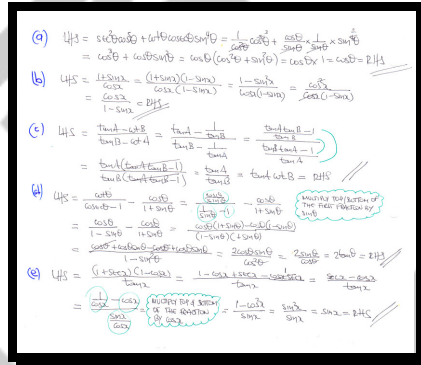 (a) LHS = sec²θcos⁵θ + cotθcosecθsin⁴θ = 1/cos²θ cos⁵θ + cosθ/sinθ × 1/sinθ × sin⁴θ
= cos³θ + cosθsin²θ = cosθ(cos²θ + sin²θ) = cosθ × 1 = cosθ = RHS
(b) LHS = 1+sinx/cosx = (1+sinx)(1-sinx)/cosx(1-sinx) = 1-sin²x/cosx(1-sinx) = cos²x/cosx(1-sinx)
= cosx/1-sinx = RHS
(c) LHS = tanA-cotB/tanB-cotA = tanA - 1/tanB / tanB - 1/tanA = tanAtanB-1/tanB / tanBtanA-1/tanA
= tanA(tanAtanB-1)/tanB(tanAtanB-1) = tanA/tanB = tanA cotB = RHS
(d) LHS = cotθ/cosecθ-1 - cosθ/1+sinθ = cosθ/sinθ / 1/sinθ - 1 - cosθ/1+sinθ
MULTIPLY TOP/BOTTOM OF
THE FIRST FRACTION BY
sinθ
= cosθ/1-sinθ - cosθ/1+sinθ = cosθ(1+sinθ)-cosθ(1-sinθ)/(1-sinθ)(1+sinθ)
= cosθ+cosθsinθ-cosθ+cosθsinθ/1-sin²θ = 2cosθsinθ/cos²θ = 2sinθ/cosθ = 2tanθ = RHS
(e) LHS = (1+secx)(1-cosx)/tanx = 1-cosx+secx-cosxsecx/tanx = secx-cosx/tanx
= 1/cosx - cosx / sinx/cosx
MULTIPLY TOP & BOTTOM
OF THE FRACTION
BY cosx
= 1-cos²x/sinx = sin²x/sinx = sinx = RHS